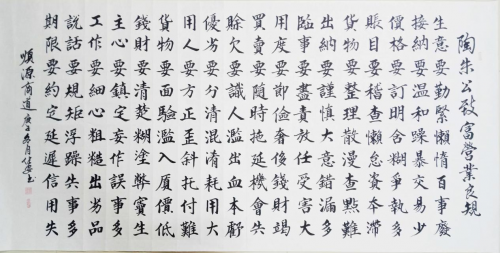 陶朱公致富營業良規
生意要勤緊懶惰百事廢
接納要温和躁暴交易少
價格要訂明含糊爭執多
賬目要稽查懶怠資本滯
貨物要整理散漫查點難
出納要謹慎大意錯漏多
臨事要盡責放任受害大
用度要節儉奢侈錢財竭
買賣要隨時拖延機會失
賒欠要識人濫出血本虧
優劣要分清混淆耗用大
用人要方正歪斜托付難
貨物要面驗濫入厦價低
錢財要清楚糊塗弊竇生
主心要鎮定妄作誤事多
工作要細心粗糙出劣品
說話要規矩浮躁失事多
期限要約定延遲信用失
順源商道